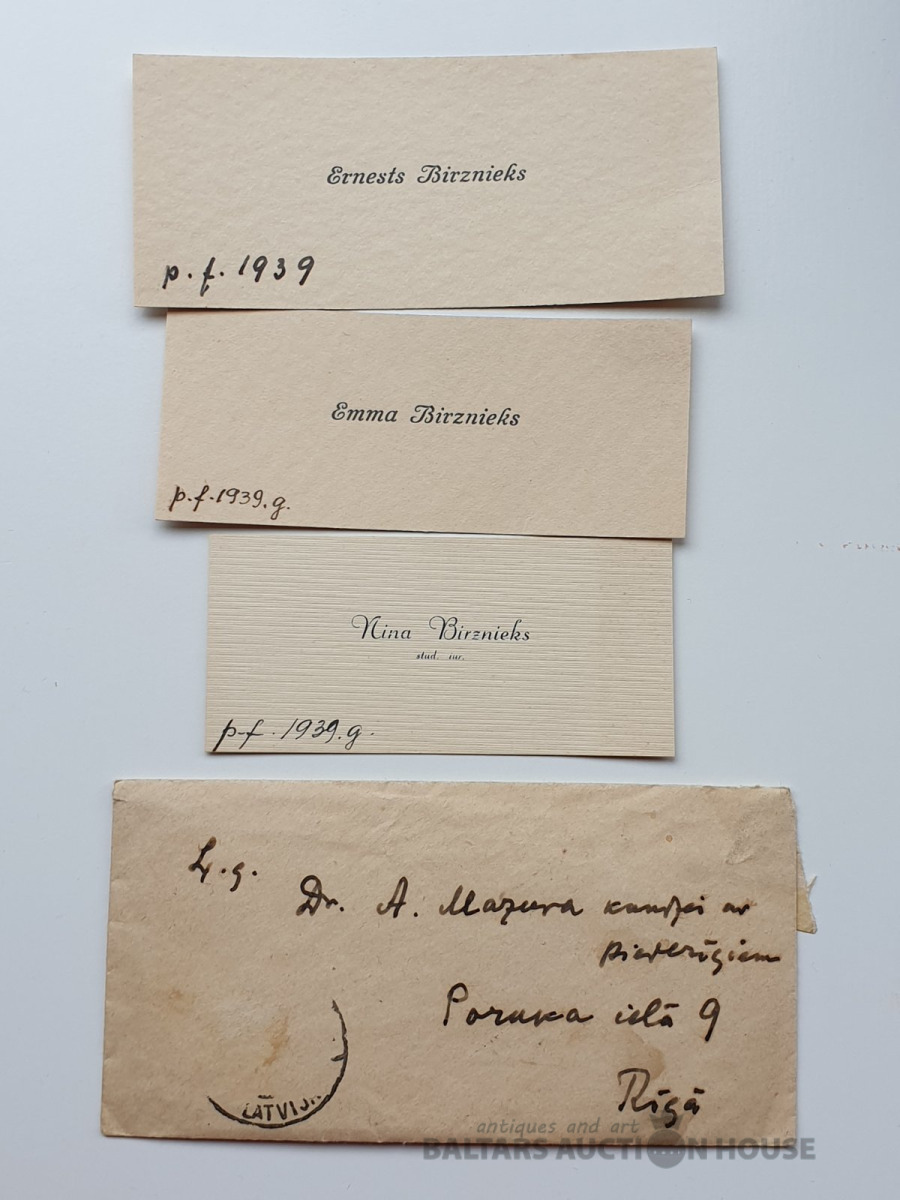 Ernests Birznieks
p. f. 1939
Emma Birznieks
p. f. 1939. g.
Nina Birznieks
stud. iur.
p. f. 1939. g.
L. g.
Dr. A. Mazura kundzei ar
piederīgiem
Poruka ielā 9
Rīgā
LATVIJA
antiques and art
BALTARS AUCTION HOUSE